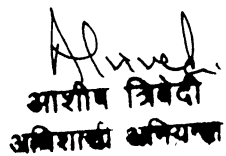 आशीष त्रिवेदी
अधिशाखा अभियन्ता